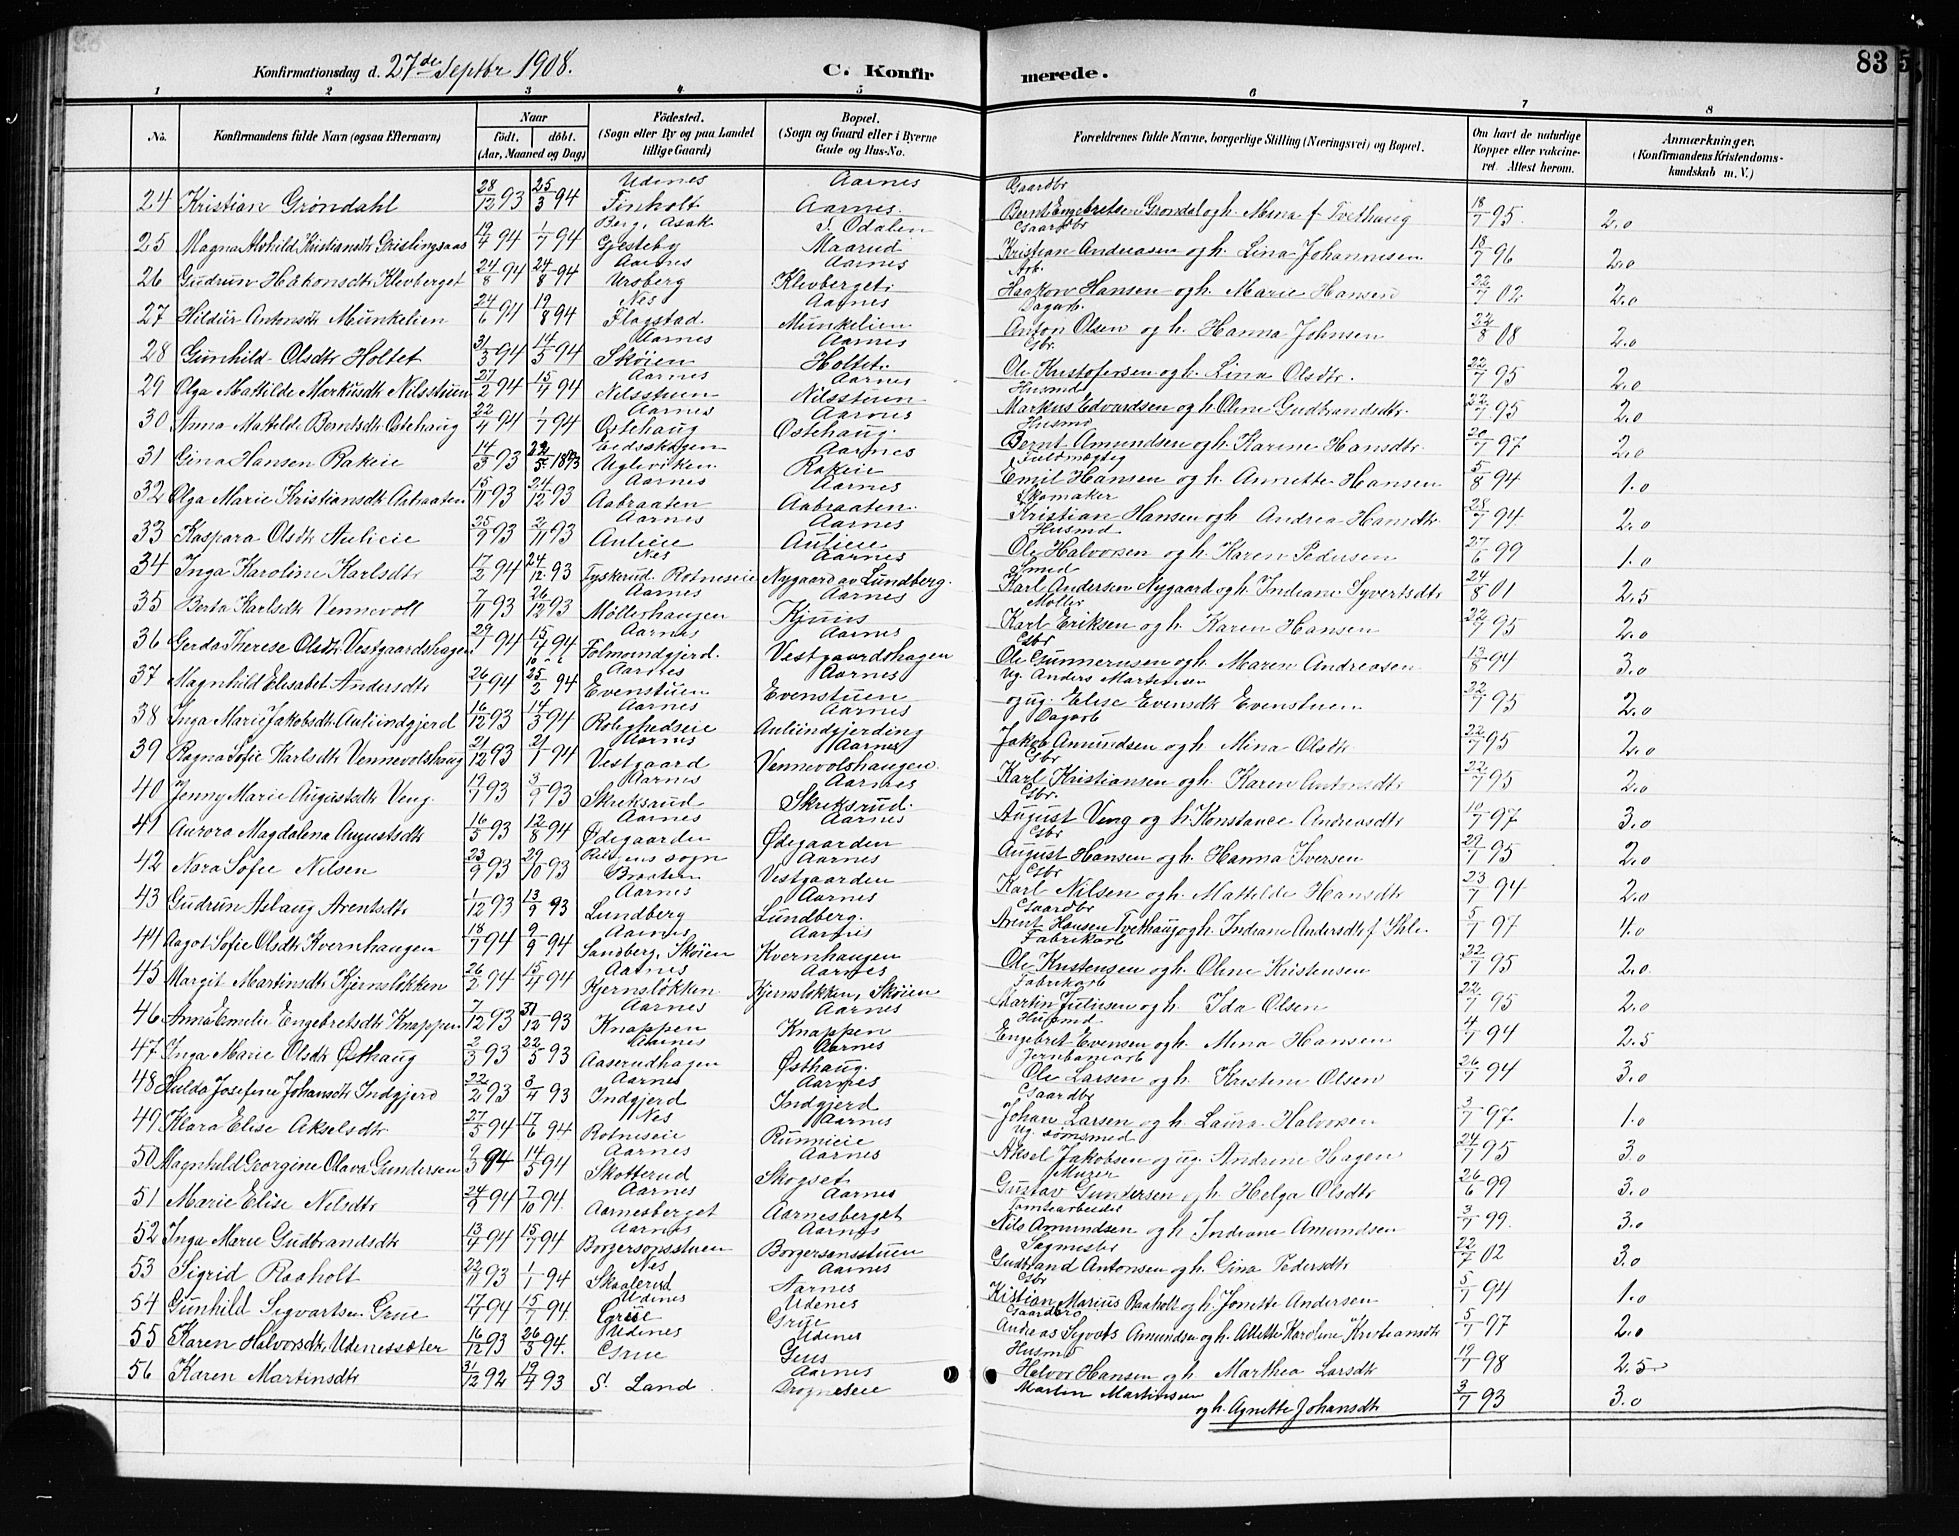 83
Konfirmationsdag d. 27de Septbr 1908. C. Konfirmerede.
1 2 3 4 5 6 7 8
No. Konfirmandens fulde Navn (ogsaa Efternavn) Naar født. døbt. (Aar, Maaned og Dag) Fødested. (Sogn eller By og paa Landet tillige Gaard) Bopæl. (Sogn og Gaard eller i Byerne Gade og Hus-No. Forældrenes fulde Navne, borgerlige Stilling (Næringsvei) og Bopæl. Om havt de naturlige Kopper eller vaccineret. Attest herom. Anmærkninger. (Konfirmandens Kristendomskundskab m. V.)
24 Kristian Grøndahl 28/12 93 25/3 94 Udenes Finholt Aarnes Aarnes Gaardbr Bernt Engebretsen Grøndal og h. Mina f Tvethaug 18/7 95 2.0
25 Magna Alvhild Kristiansdtr Grislingsaas 19/4 94 1/7 94 Berg, Asak Gjesteby S. Odalen Maarud Gaardbr Kristian Andreasen og h. Lina Johannesen 18/7 96 2.0
26 Gudrun Håkonsdtr Klevberget 24/8 94 24/8 94 Aarnes Ursberg Aarnes Klevberget Arb. Haakon Hansen og h. Marie Hansen 22/7 02 2.0
27 Hildur Antonsdtr Munkelien 24/6 94 19/8 94 Nes Flagstad Aarnes Munkelien Dagarb. Anton Olsen og h. Hanna Johnsen 22/8 08 2.0
28 Gunhild Olsdtr Holtet 31/3 94 14/5 94 Aarnes Skøien Aarnes Holtet Gbr. Ole Kristofersen og h. Lina Olsdtr. 22/7 95 2.0
29 Olga Mathilde Markusdtr Nilsstuen 27/2 94 15/4 94 Aarnes Nilsstuen Aarnes Nilsstuen Husmd Markus Edvardsen og h. Oline Gudbrandsdtr. 22/7 95 2.0
30 Anna Matilde Berntsdtr Østehaug 22/4 94 1/7 94 Aarnes Østehaug Aarnes Østehaug Husmd Bernt Amundsen og h. Karine Hansdtr. 20/7 97 2.0
31 Gina Hansen Rakeie 14/3 93 22/5 1893 Eidsskogen Ugleviken Aarnes Rakeie Fuldmægtig Emil Hansen og h. Annette Hansen 5/8 94 1.0
32 Olga Marie Kristiansdtr Aabraaten 15/11 93 24/12 93 Aarnes Aabraaten Aarnes Aabraaten Skomaker Kristian Hansen og h Andrea Hansdtr 28/7 94 2.0
33 Kaspara Olsdtr Aulieie 25/9 93 2/11 93 Aarnes Aulieie Aarnes Aulieie Husmd Ole Halvorsen og h. Karen Pedersen 27/6 99 1.0
34 Inga Karoline Karlsdtr 17/2 94 24/12 93 Nes Tyskerud Rotneseie Aarnes Nygaard av Lundberg. Smed Karl Andersen Nygaard og h. Indiane Syvertsdtr 24/8 01 2.5
35 Berta Karlsdtr Vennevoll 7/11 93 26/12 93 Aarnes Møllerhaugen Aarnes Kjuus Møller Karl Eriksen og h. Karen Hansen 22/7 95 2.0
36 Gerda Therese Olsdtr Vestgaardshagen 29/1 94 15/4 94 Aarnes Folmoindgjerd. Aarnes Vestgaardshagen Gbr Ole Gunnerusen og h. Maren Andreasen 13/8 94 3.0
37 Magnhild Elisabet Andersdtr 26/1 94 25/2 94 Aarnes Evenstuen Aarnes Evenstuen Ug. Anders Martensen og ug. Elise Evensdtr Evenstuen 22/7 95 2.0
38 Inga Marie Jakobsdtr Auliindgjerd 16/12 93 14/3 94 Aarnes Rolighedseie Aarnes Auliindgjerding Dagarb Jakob Amundsen og h. Mina Olsdtr 22/7 95 2.0
39 Ragna Sofie Karlsdtr Vennevolshaug 21/12 93 21/1 94 Aarnes Vestgaard Aarnes Vennevolshaugen Gbr Karl Kristiansen og h. Karen Antonsdtr 22/7 95 2.0
40 Jenny Marie Augustsdtr Veng 19/7 93 3/9 93 Aarnes Skreksrud Aarnes Skreksrud. Gbr. August Veng og h. Konstance Andreasdtr 10/7 97 3.0
41 Aurora Magdalena Augustsdtr 16/5 93 12/8 94 Aarnes Ødegaarden Aarnes Ødegaarden Gbr August Hansen og h. Hanna Iversen 29/7 95 2.0
42 Nora Sofie Nilsen 23/9 93 29/10 93 sogn Braaten Aarnes Vestgaarden Gbr Karl Nilsen og h. Mattilde Hansdtr 23/7 94 2.0
43 Gudrun Aslaug Arentsdtr 1/12 93 13/9 93 Aarnes Lundberg Aarnes Lundberg. Gaardbr Arent Hansen Tvethaug og h. Indiane Andersdtr f. 5/7 97 4.0
44 Aagot Sofie Olsdtr Kvernhaugen 18/7 94 9/9 94 Aarnes Sandberg, Skøien Aarnes Kvernhaugen Fabrikarb Ole Kristensen og h. Oline Kristensen 22/7 95 2.0
45 Margit Martinsdtr Kjernsløkken 26/2 94 15/4 94 Aarnes Kjernsløkken Aarnes Kjernsløkken, Skøien Fabrikarb Martin Juliusen og h. Ida Olsen 22/7 95 2.0
46 Anna Emelie Engebretsdtr Knappen 7/12 93 31/12 93 Aarnes Knappen Aarnes Knappen Husmd Engebret Evensen og h. Mina Hansen 4/7 94 2.5
47 Inga Marie Olsdtr Østhaug 2/3 93 22/5 93 Aarnes Aaserudhagen Aarnes Østhaug. Jernbanearb Ole Larsen og h. Kristine Olsen 26/7 94 3.0
48 Hulda Josefine Johansdtr Indgjerd 22/2 93 3/4 93 Aarnes Indgjerd Aarnes Indgjerd Gaardbr Johan Larsen og h. Laura Halvorsen 3/7 97 1.0
49 Klara Elise Akselsdtr 27/5 94 17/6 94 Nes Rotneseie Aarnes Runnieie Ug. sømsmed Aksel Jakobsen og ug. Andrine Hagen 24/7 95 3.0
50 Magnhild Georgine Olava Gundersen 9/3 94 14/5 94 Aarnes Skotterud Aarnes Skogset Murer Gustav Gundersen og h. Helga Olsdtr 26/6 99 3.0
51 Marie Elise Nilsdtr 24/9 94 7/10 94. Aarnes Aarnesberget Aarnes Aarnesberget Tomtearbeider Nils Amundsen og h. Indiane Amundsen 3/7 99. 3.0
52 Inga Marie Gudbrandsdtr 13/4 94 15/7 94 Aarnes Borgersonsstuen Aarnes Borgersonsstuen Sagmester Gudbrand Antonsen og h. Gina Pedersdtr 22/7 02 3.0
53 Sigrid Raaholt 22/11 93 1/1 94 Nes Skaalerud Aarnes Aarnes Gbr Kristian Marius Raaholt og h. Jonette Andersen 5/7 94 1.0
54 Gunhild Segvartsen Grue 17/4 94 15/7 94. Udenes Grue Udenes Grue Gaardbr Andreas Sigvarts Amundsen og h. Allette Karoline Kristiansdtr 5/7 97 2.0
55 Karen Halvorsdtr Udenessæter 16/12 93 26/3 94. Udenes Grue Udenes Husmd Halvor Hansen og h. Marthea Larsdtr 19/7 98 2.5
56 Karen Martinsdtr 31/12 92 19/4 93 S. Land Aarnes Drogneseie Martin Martinsen og h. Agnette Johansdtr 3/7 93 3.0